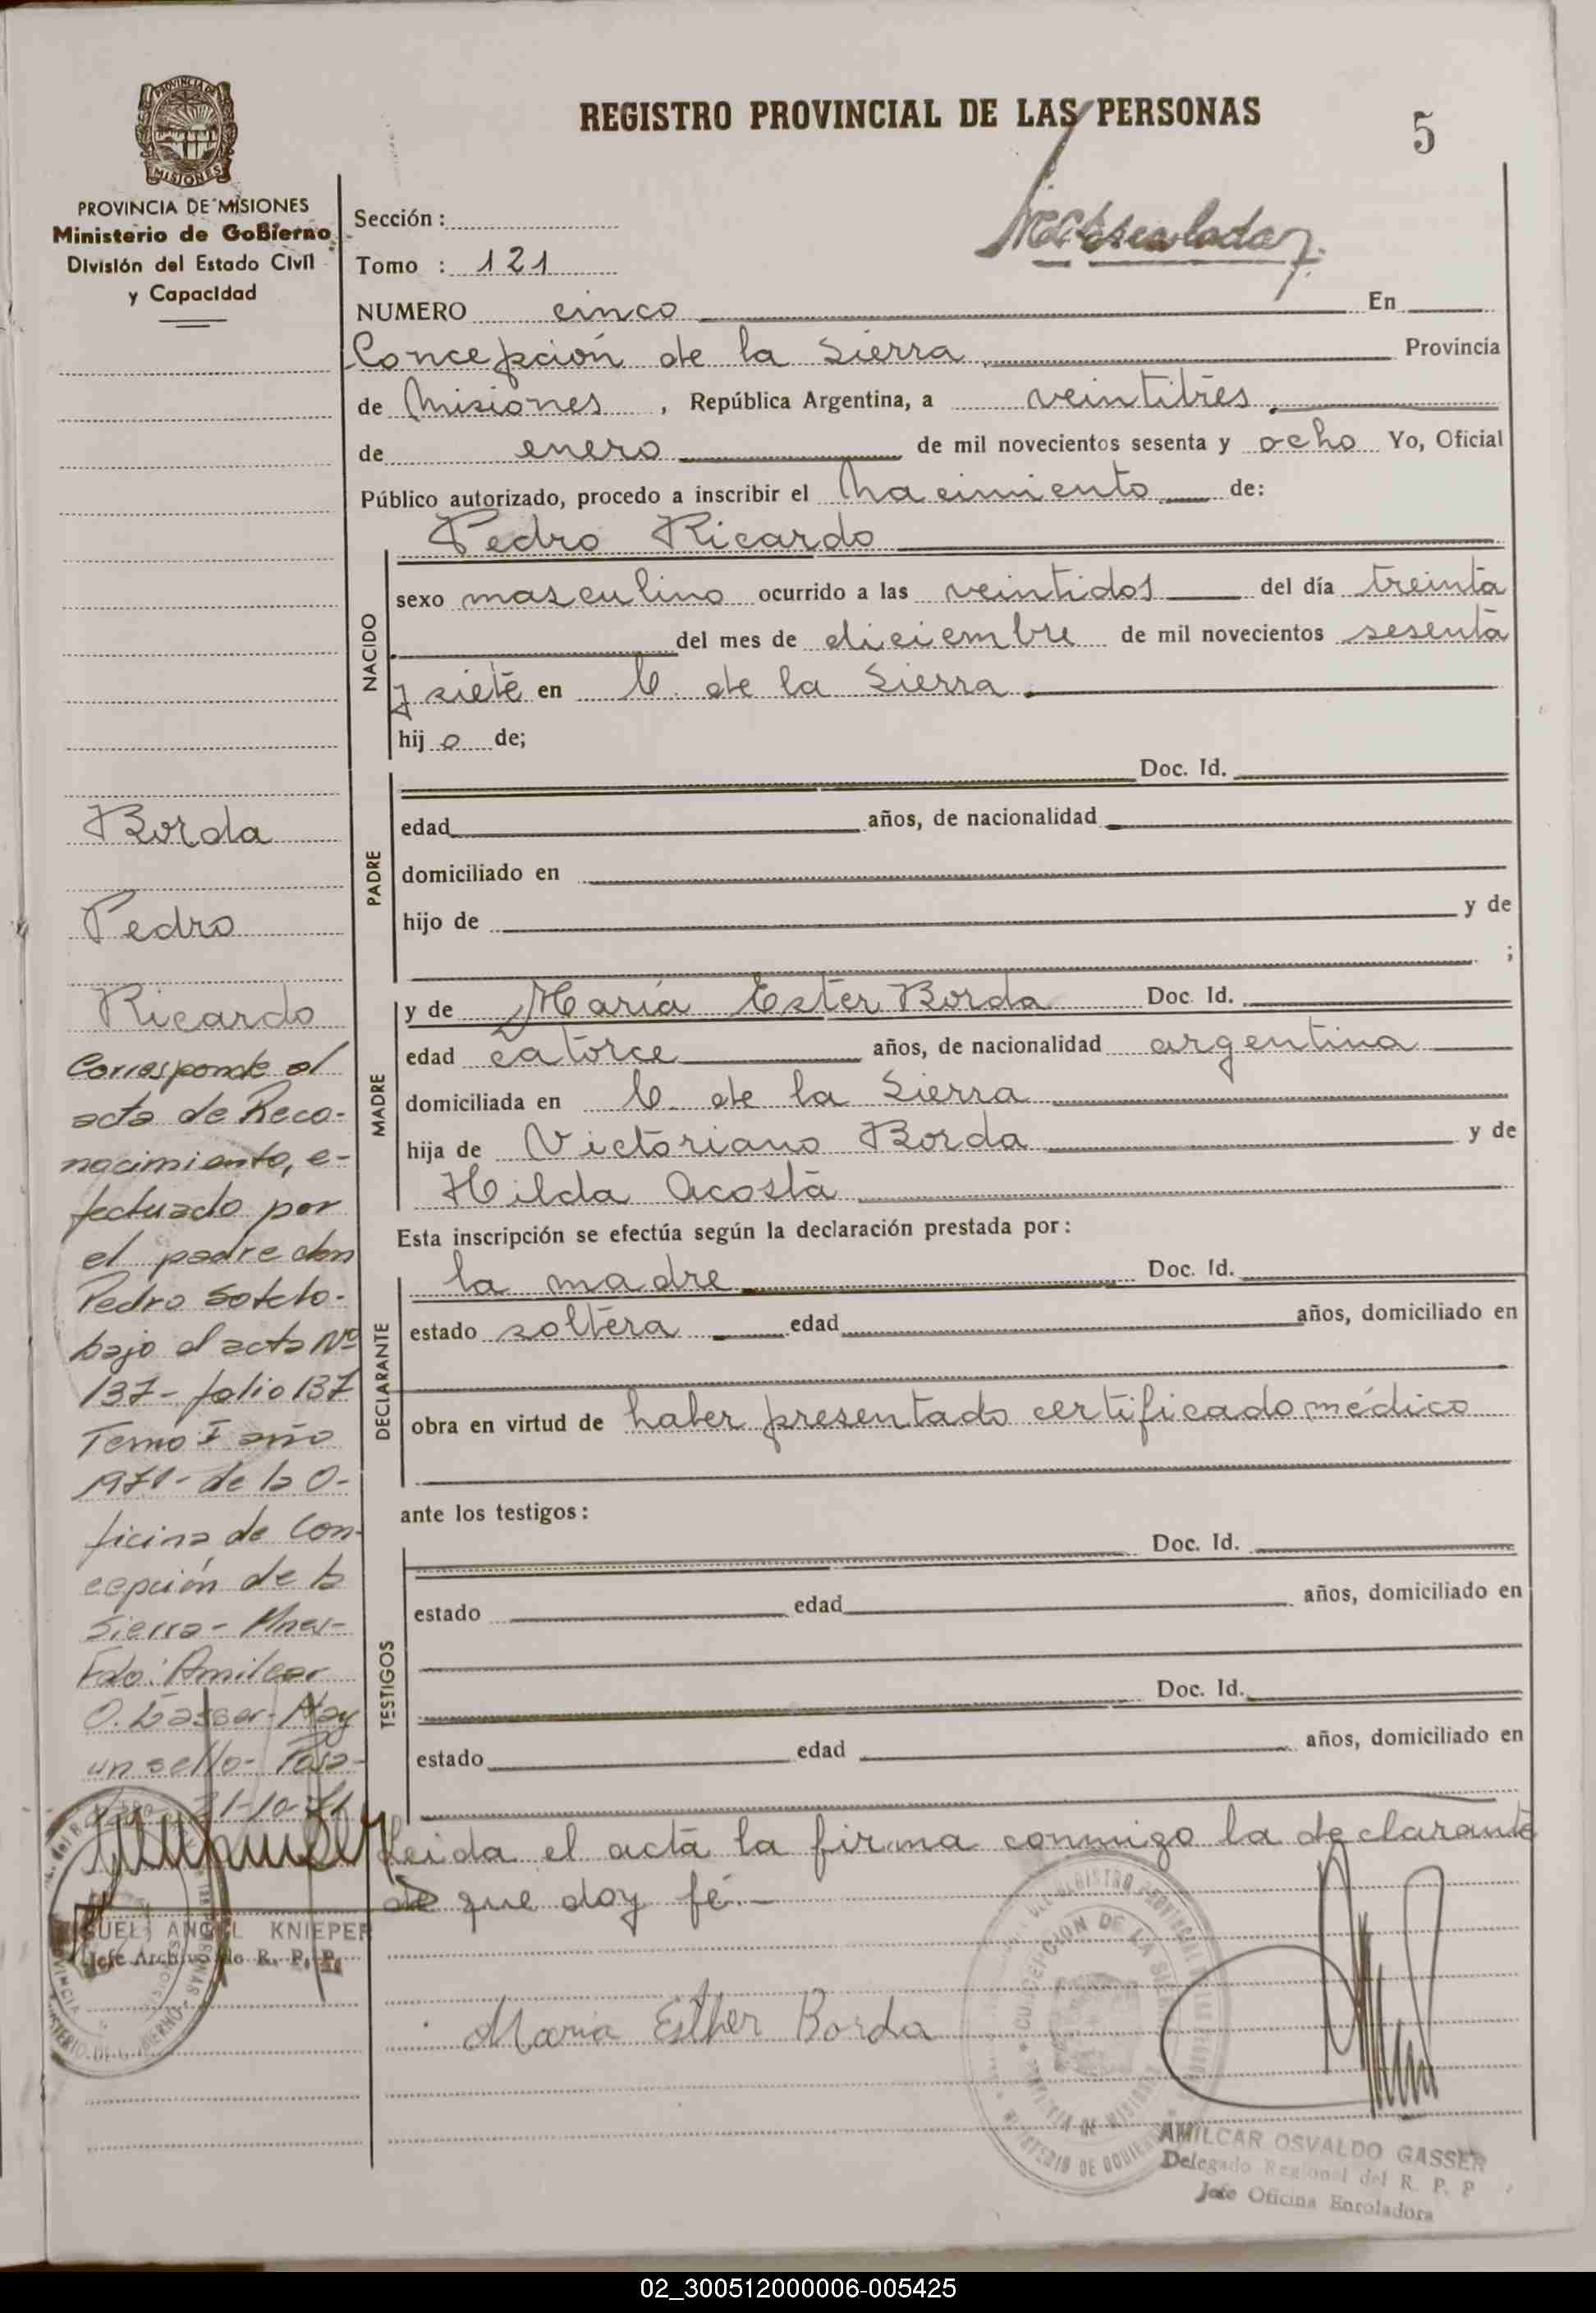 REGISTRO PROVINCIAL DE LAS PERSONAS
5
PROVINCIA DE MISIONES
MISIONES
PROVINCIA DE MISIONES
Ministerio de Gobierno
División del Estado Civil
y Capacidad
Sección :
Tomo : 121
NUMERO cinco En
Concepción de la Sierra Provincia
de Misiones , República Argentina, a veintitrés
de enero de mil novecientos sesenta y ocho Yo, Oficial
Público autorizado, procedo a inscribir el Nacimiento de:
Pedro Ricardo
NACIDO
sexo masculino ocurrido a las veintidos del día treinta
del mes de diciembre de mil novecientos sesenta
y siete en C. de la Sierra
hij o de;
PADRE
Doc. Id.
edad años, de nacionalidad
domiciliado en
hijo de y de
;
MADRE
y de María Ester Borda Doc. Id.
edad catorce años, de nacionalidad argentina
domiciliada en C. de la Sierra
hija de Victoriano Borda y de
Hilda Acosta
Esta inscripción se efectúa según la declaración prestada por:
DECLARANTE
la madre Doc. Id.
estado soltera edad años, domiciliado en
obra en virtud de haber presentado certificado médico
ante los testigos:
TESTIGOS
Doc. Id.
estado edad años, domiciliado en
Doc. Id.
estado edad años, domiciliado en
Leida el acta la firma conmigo la declarante
de que doy fé.-
Maria Esther Borda
AMILCAR OSVALDO GASSER
Delegado Regional del R. P. P
Jefe Oficina Enroladora
Borda
Pedro
Ricardo
Corresponde al
acta de Reco-
nocimiento, e-
fectuado por
el padre don
Pedro Sotelo-
bajo el acta Nº
137- folio 137
Tomo I año
1971- de la O-
ficina de Con-
cepción de la
Sierra- Mnes-
Fdo: Amilcar
O. Gasser- Hay
un sello- Posa-
21-10-71
GUEL ANGEL KNIEPER
Jefe Archivo do R. P. P.
02_300512000006-005425